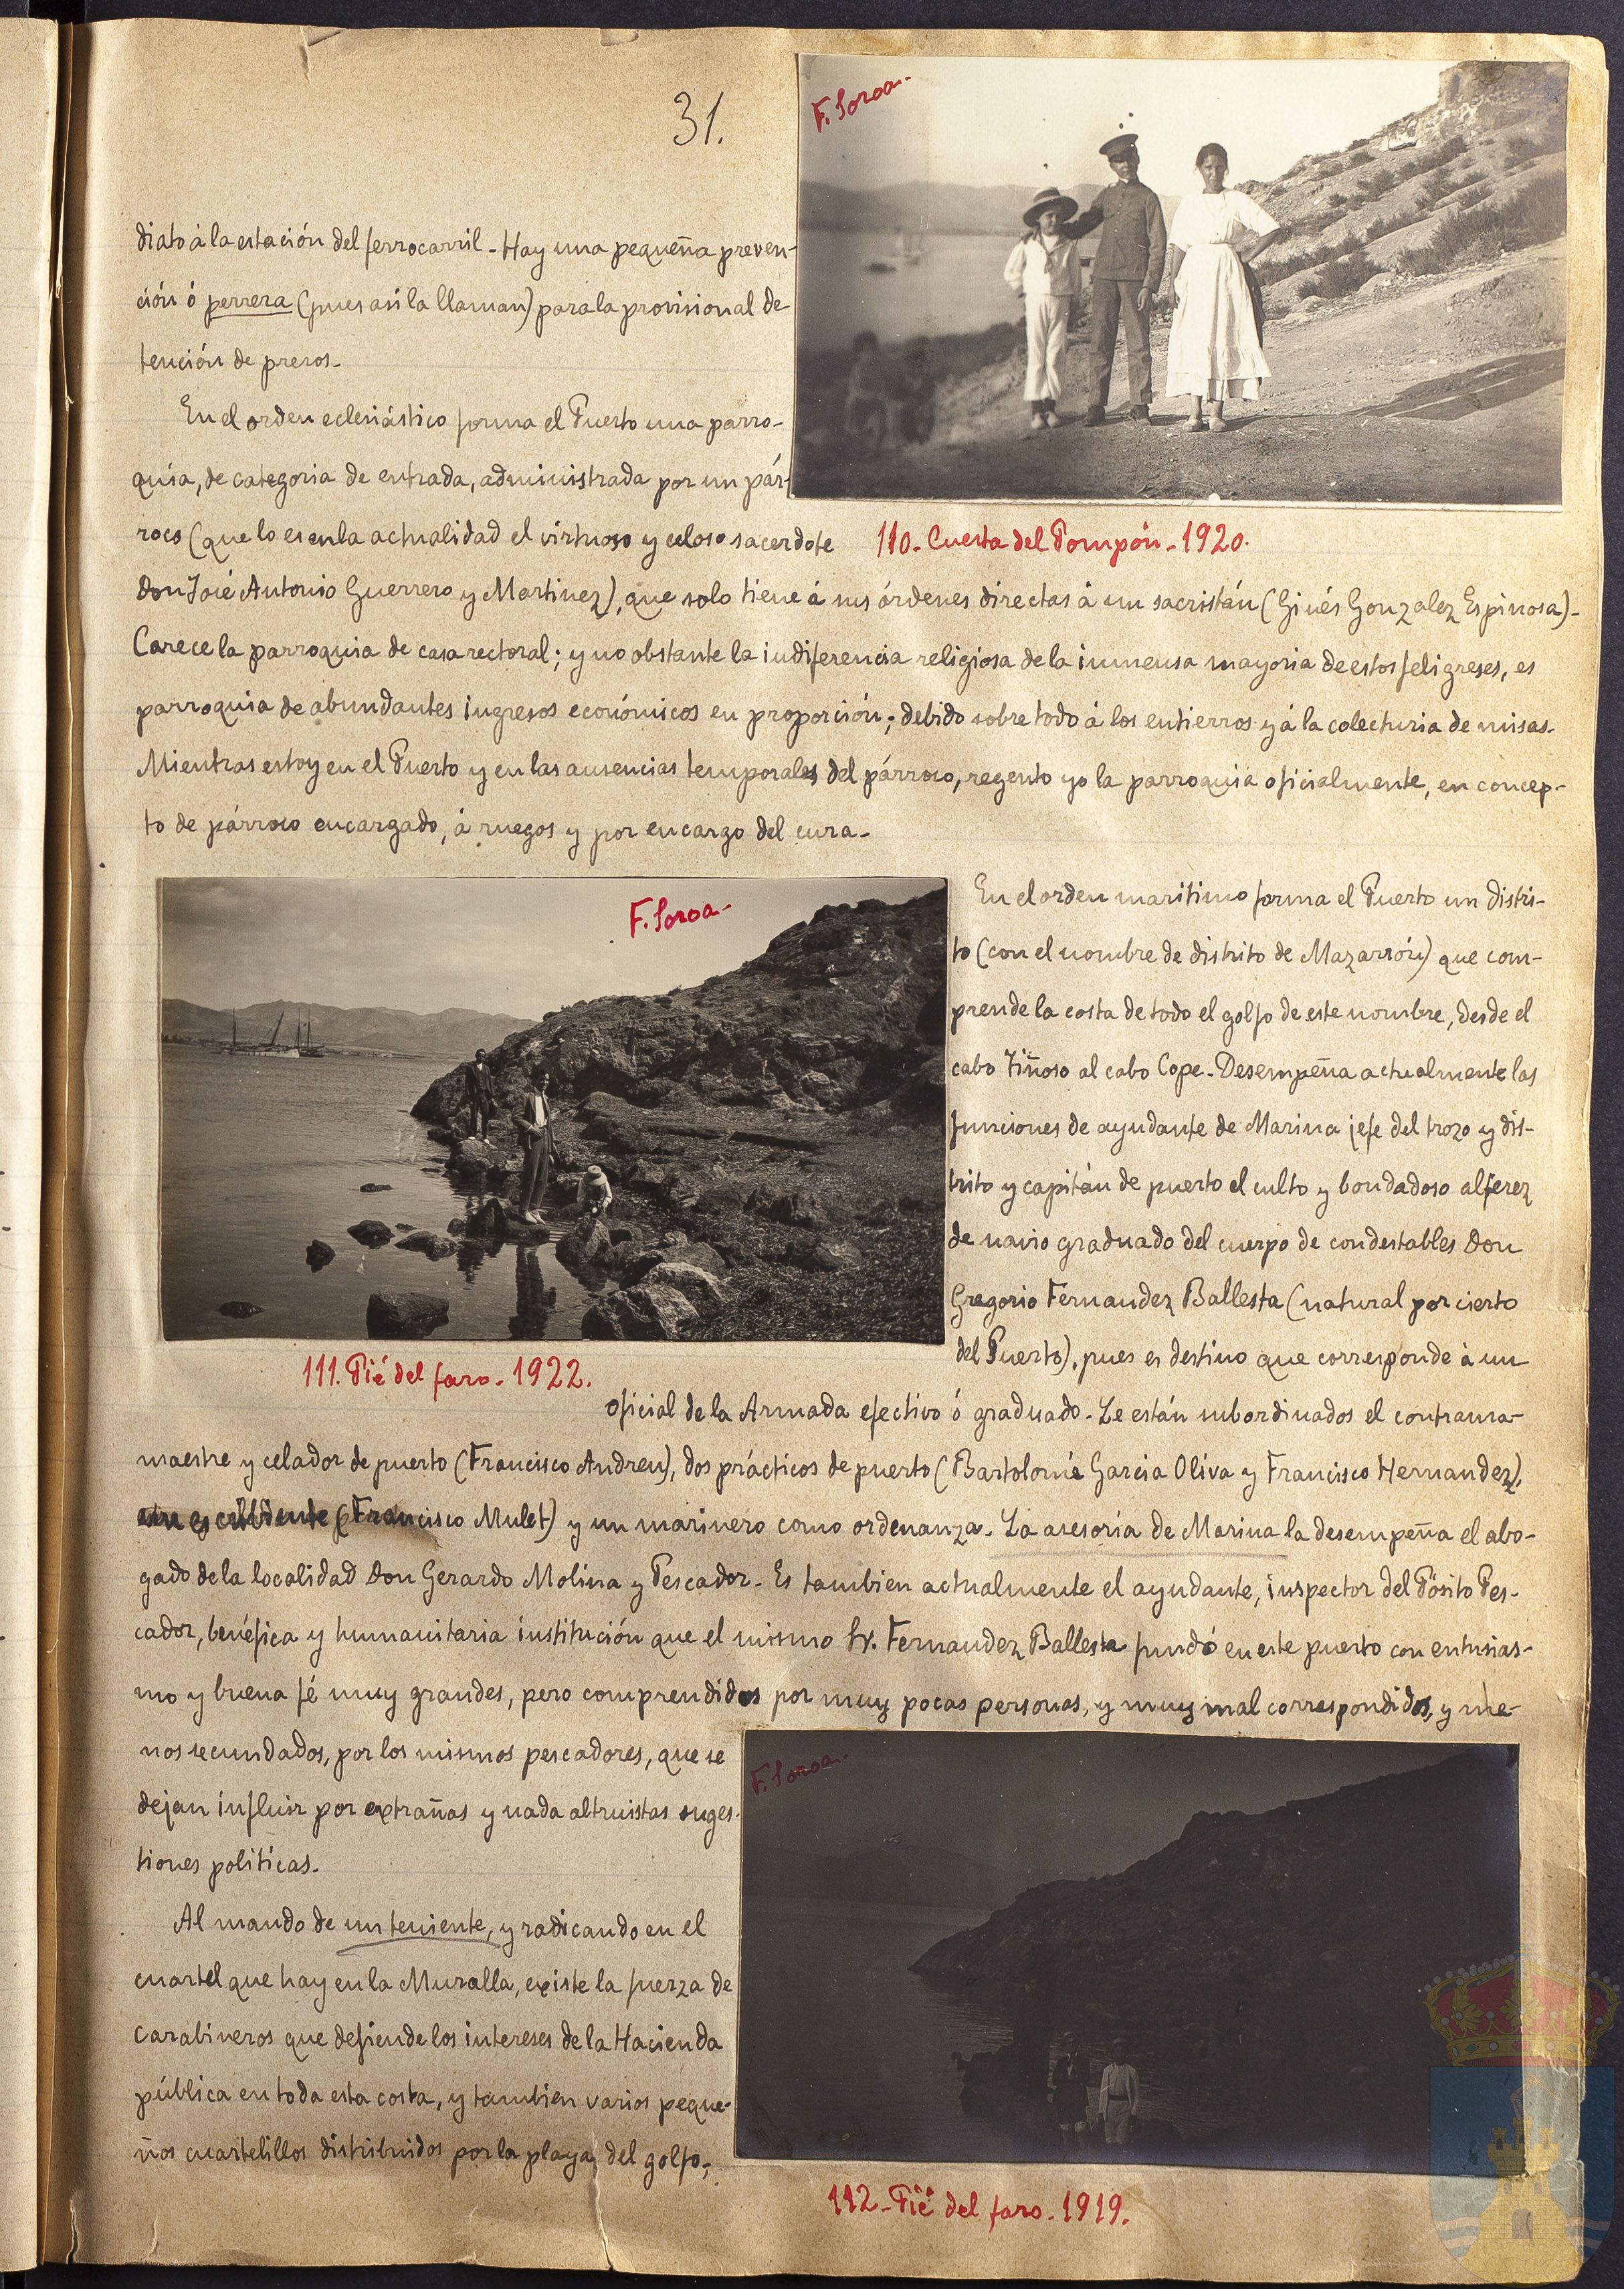 31.
F. Soroa.-
diato á la estación del ferrocarril.- Hay una pequeña preven-
ción ó perrera (pues así la llaman) para la provisional de
tención de presos.-
En el orden eclesiástico forma el Puerto una parro-
quia, de categoria de entrada, administrada por un pár-
roco (que lo es en la actualidad el virtuoso y celoso sacerdote
110.- Cuesta del Pompón.- 1920.
Don José Antonio Guerrero y Martinez), que solo tiene á sus órdenes directas á un sacristán (Ginés Gonzalez Espinosa).-
Carece la parroquia de casa rectoral; y no obstante la indiferencia religiosa de la inmensa mayoria de estos feligreses, es
parroquia de abundantes ingresos económicos en proporción; debido sobre todo á los entierros y á la colecturia de misas.-
Mientras estoy en el Puerto y en las ausencias temporales del párroco, regento yo la parroquia oficialmente, en concep-
to de párroco encargado, á ruegos y por encargo del cura.-
F. Soroa.-
En el orden maritimo forma el Puerto un distri-
to (con el nombre de distrito de Mazarrón) que com-
prende la costa de todo el golfo de este nombre, desde el
cabo Tiñoso al cabo Cope.- Desempeña actualmente las
funciones de ayudante de Marina jefe del trozo y dis-
trito y capitán de puerto el culto y bondadoso alferez
de navio graduado del cuerpo de condestables Don
Gregorio Fernandez Ballesta (natural por cierto
del Puerto), pues es destino que corresponde á un
111. Pié del faro.- 1922.
oficial de la Armada efectivo ó graduado.- Le están subordinados el contrama-
maestre y celador de puerto (Francisco Andreu), dos prácticos de puerto (Bartolomé Garcia Oliva y Francisco Hernandez),
un escribiente (Francisco Mulet) y un marinero como ordenanza.- La asesoría de Marina la desempeña el abo-
gado de la localidad Don Gerardo Molina y Pescador.- Es tambien actualmente el ayudante, inspector del Pósito Pes-
cador, benéfica y humanitaria institución que el mismo Sr. Fernandez Ballesta fundó en este puerto con entusias-
mo y buena fé muy grandes, pero comprendidos por muy pocas personas, y muy mal correspondidos, y me-
nos secundados, por los mismos pescadores, que se
dejan influir por extrañas y nada altruistas suges-
tiones politicas.-
F. Soroa.-
Al mando de un teniente, y radicando en el
cuartel que hay en la Muralla, existe la fuerza de
carabineros que defiende los intereses de la Hacienda
pública en toda esta costa, y tambien varios peque-
ños cuartelillos distribuidos por la playa del golfo;
112.- Pié del faro.- 1919.